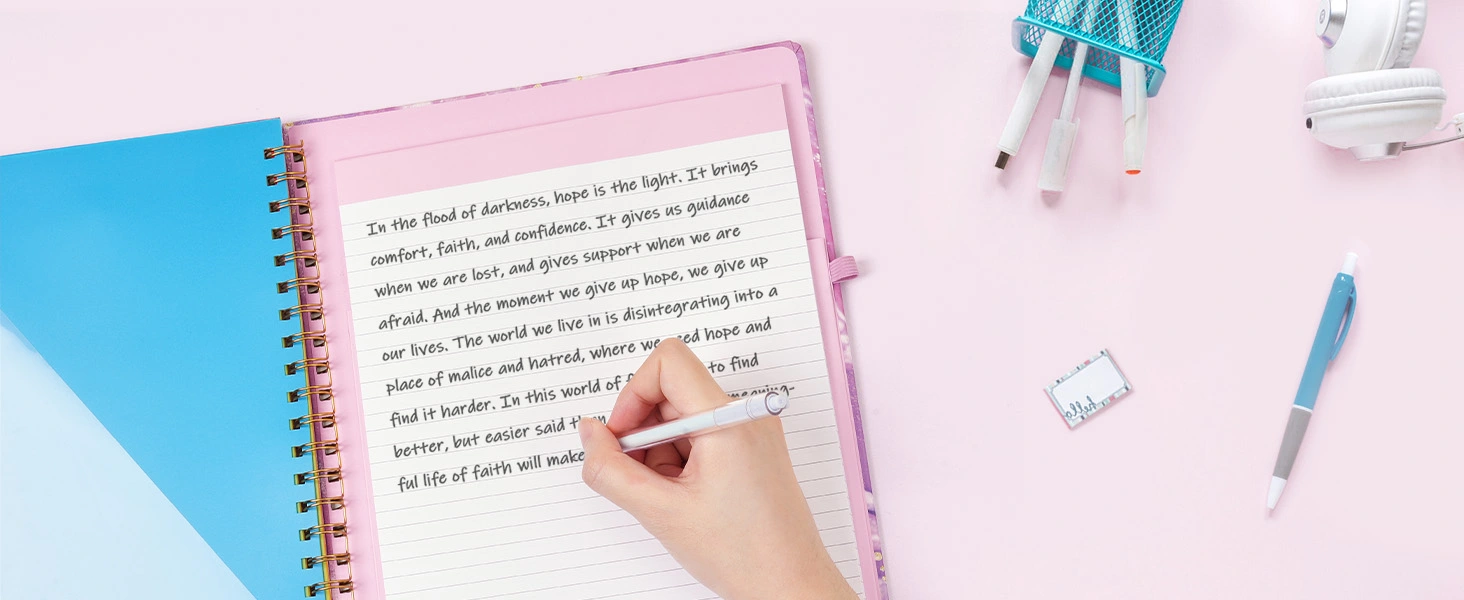 In the flood of darkness, hope is the light. It brings
comfort, faith, and confidence. It gives us guidance
when we are lost, and gives support when we are
afraid. And the moment we give up hope, we give up
our lives. The world we live in is disintegrating into a
place of malice and hatred, where we need hope and
find it harder. In this world of to find
better, but easier said than meaning-
ful life of faith will make
hello